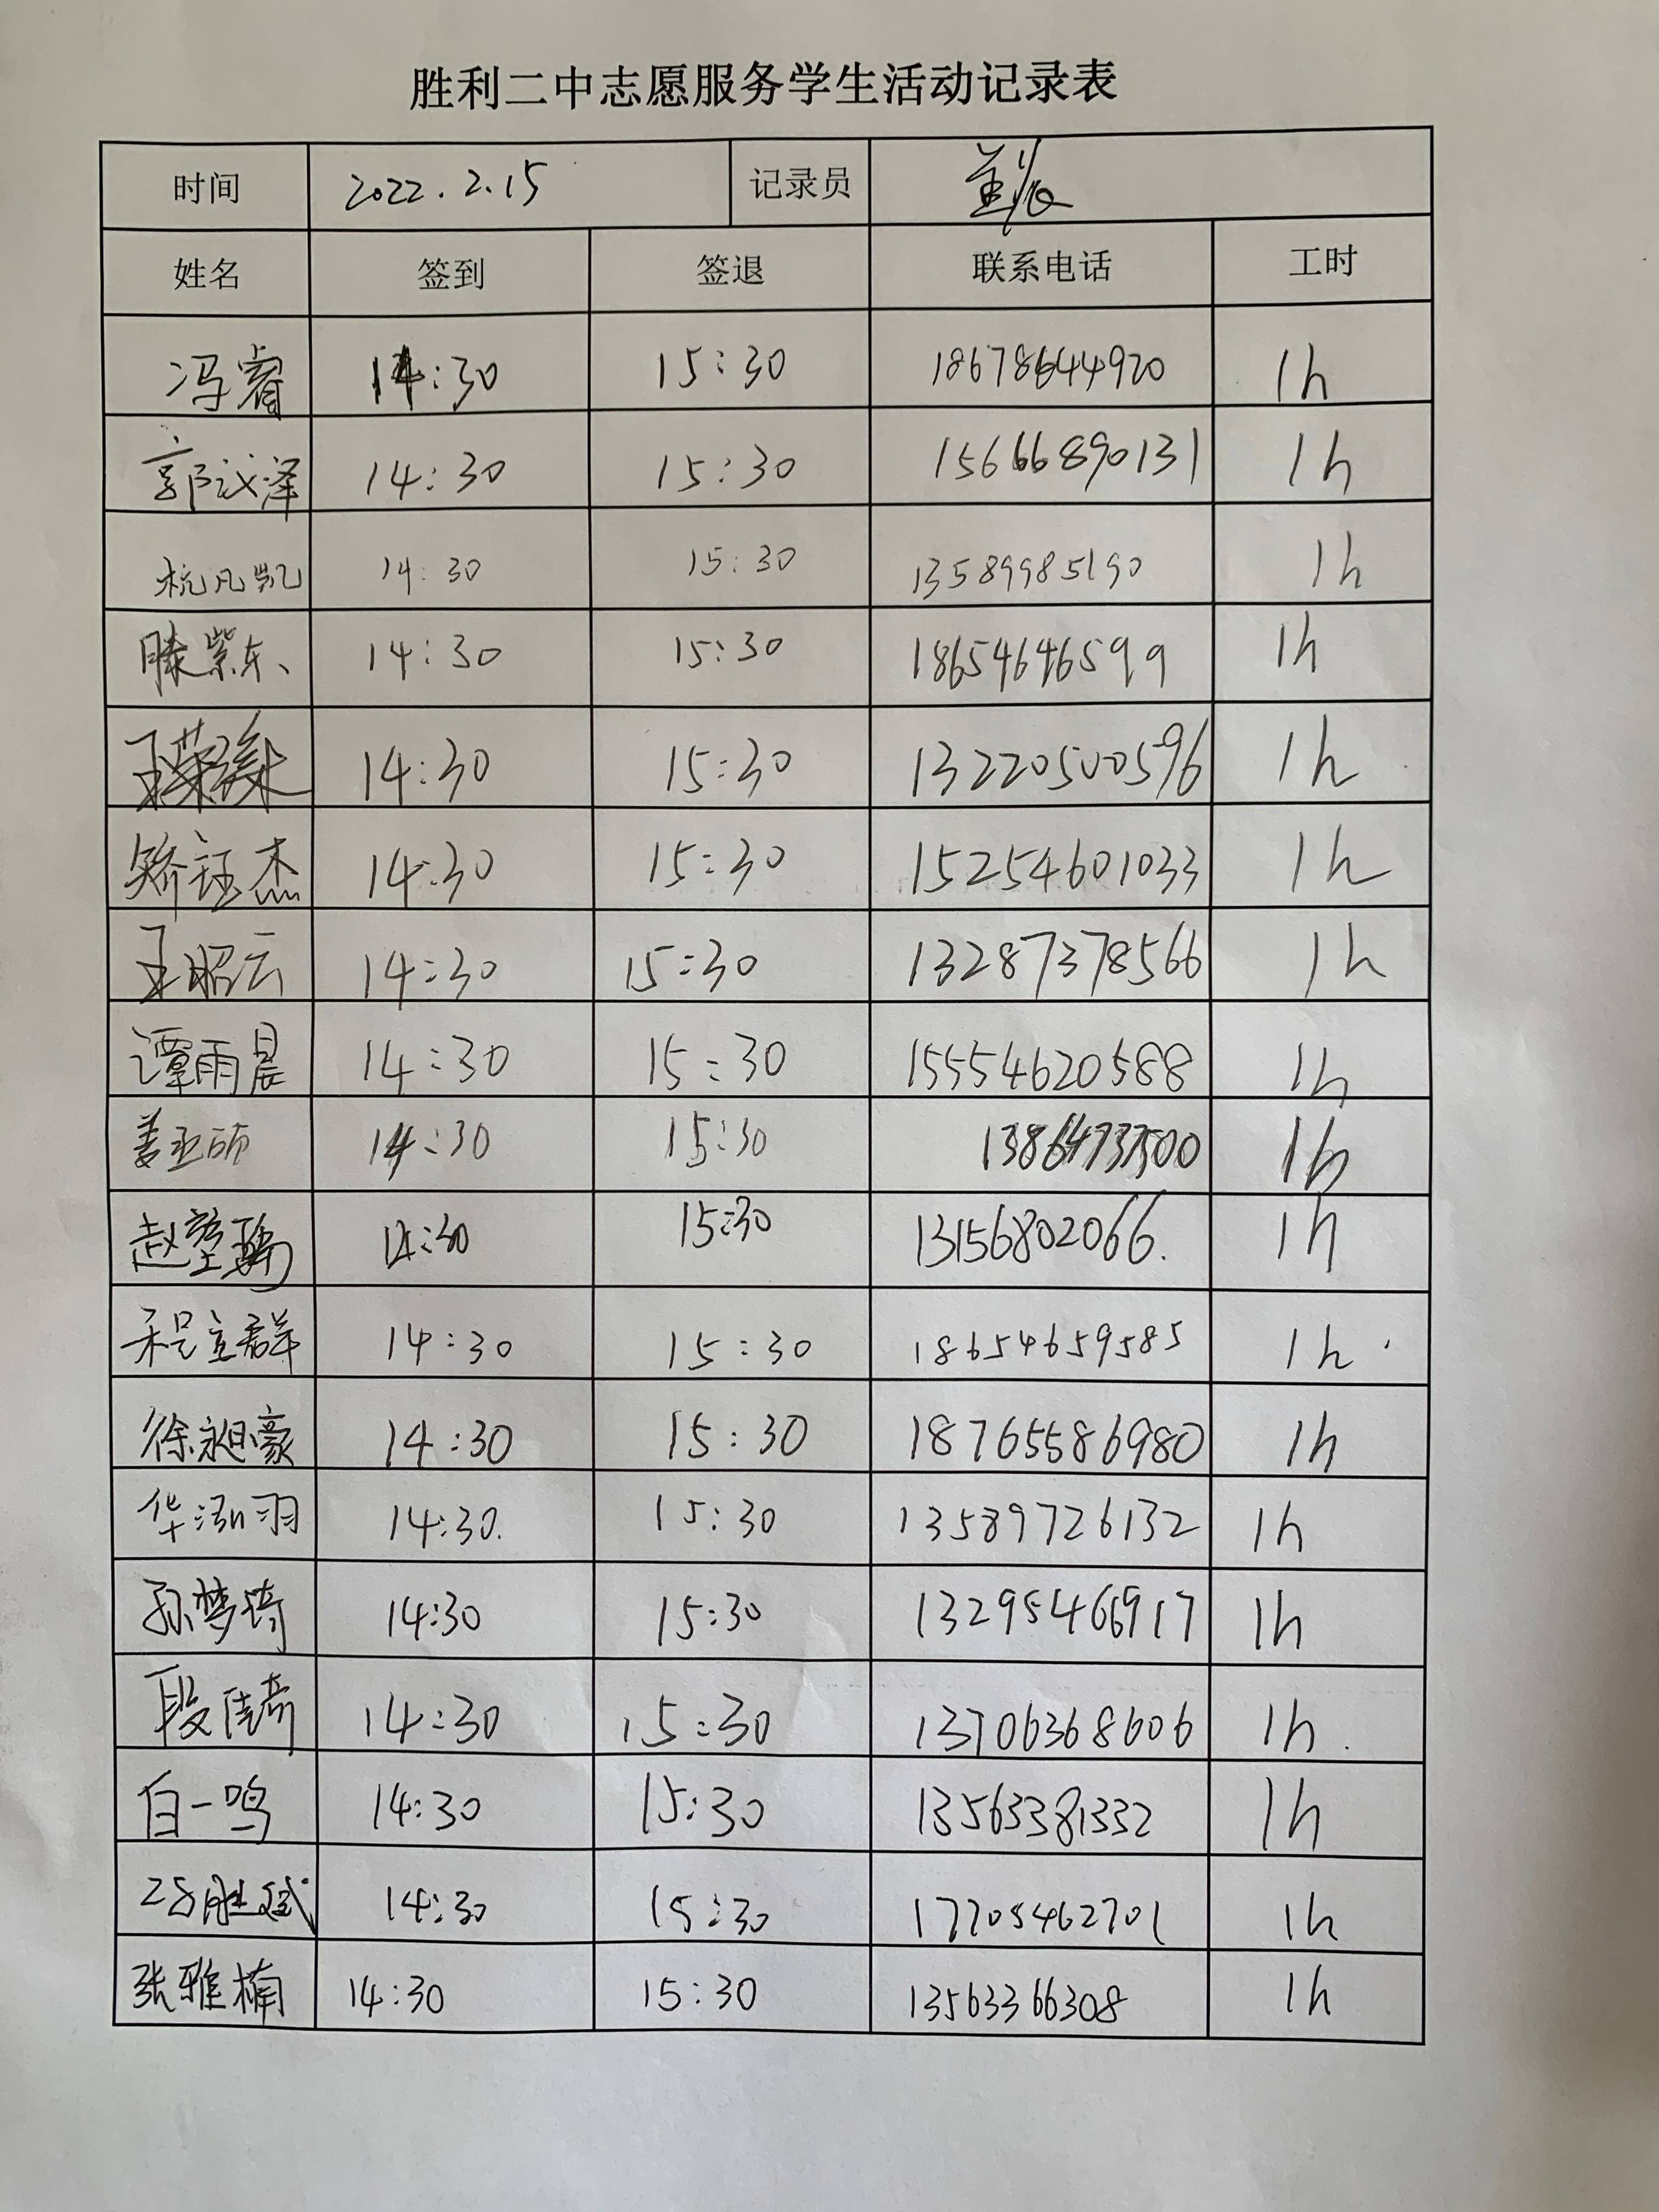 胜利二中志愿服务学生活动记录表
时间 2022.2.15 记录员
姓名 签到 签退 联系电话 工时
冯睿 14:30 15:30 18678644920 1h
郭 泽 14:30 15:30 15666890131 1h
杭凡凯 14:30 15:30 13589985190 1h
滕紫东 14:30 15:30 18654646599 1h
王 14:30 15:30 13220500596 1h
矫钰杰 14:30 15:30 15254601033 1h
王昭云 14:30 15:30 13287378566 1h
谭雨晨 14:30 15:30 15554620588 1h
姜丞硕 14:30 15:30 1h
赵 14:30 15:30 13156802066. 1h
程立群 14:30 15:30 18654659585 1h
徐昶豪 14:30 15:30 18765586980 1h
华泓羽 14:30. 15:30 13589726132 1h
孙梦琦 14:30 15:30 13295466917 1h
段倚 14:30 15:30 13706368606 1h.
白一鸣 14:30 15:30 13563381332 1h
胜斌 14:30 15:30 17705462701 1h
张雅楠 14:30 15:30 13563366308 1h